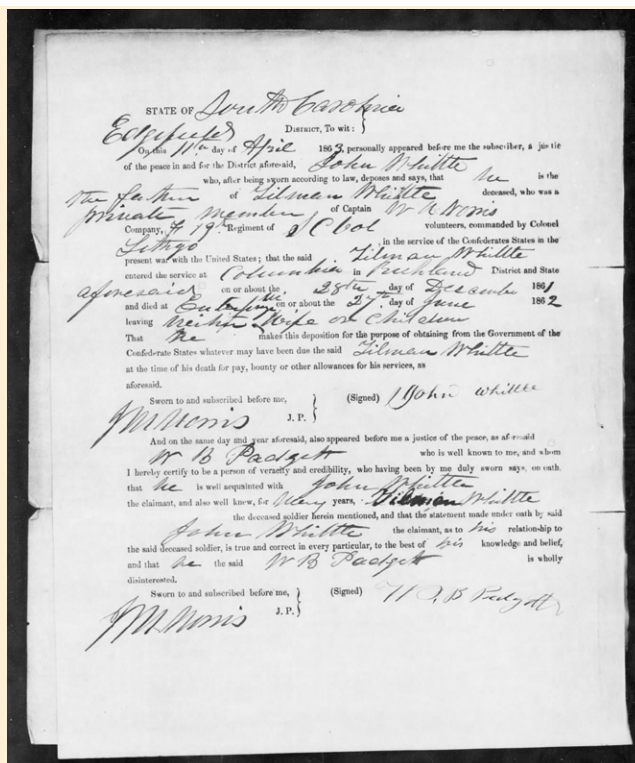 STATE OF South Carolina
Edgefield DISTRICT, To wit:
On this 11th day of April 1863, personally appeared before me the subscriber, a justice
of the peace in and for the District aforesaid, John Whittle
who, after being sworn according to law, deposes and says, that he is the
the father of Tilman Whittle deceased, who was a
private member of Captain W H Norris
Company, F 19th Regiment of S C Vol volunteers, commanded by Colonel
Lithgo, in the service of the Confederates States in the
present war with the United States; that the said Tilman Whittle
entered the service at Columbia in Richland District and State
aforesaid on or about the 28th day of December 1861
and died at Enterprise on or about the 27th day of June 1862
leaving neither Wife or Children
That he makes this deposition for the purpose of obtaining from the Government of the
Confederate States whatever may have been due the said Tilman Whittle
at the time of his death for pay, bounty or other allowances for his services, as
aforesaid.
Sworn to and subscribed before me, (Signed) John Whittle
J M Norris J. P.
And on the same day and year aforesaid, also appeared before me a justice of the peace, as aforesaid
W B Padgett who is well known to me, and whom
I hereby certify to be a person of veracity and credibility, who having been by me duly sworn says, on oath,
that he is well acquainted with John Whittle
the claimant, and also well knew, for Many years, Tilman Whittle
the deceased soldier herein mentioned, and that the statement made under oath by said
John Whittle the claimant, as to his relationship to
the said deceased soldier, is true and correct in every particular, to the best of his knowledge and belief,
and that he the said W B Padgett is wholly
disinterested.
Sworn to and subscribed before me, (Signed) W B Padgett
J M Norris J. P.